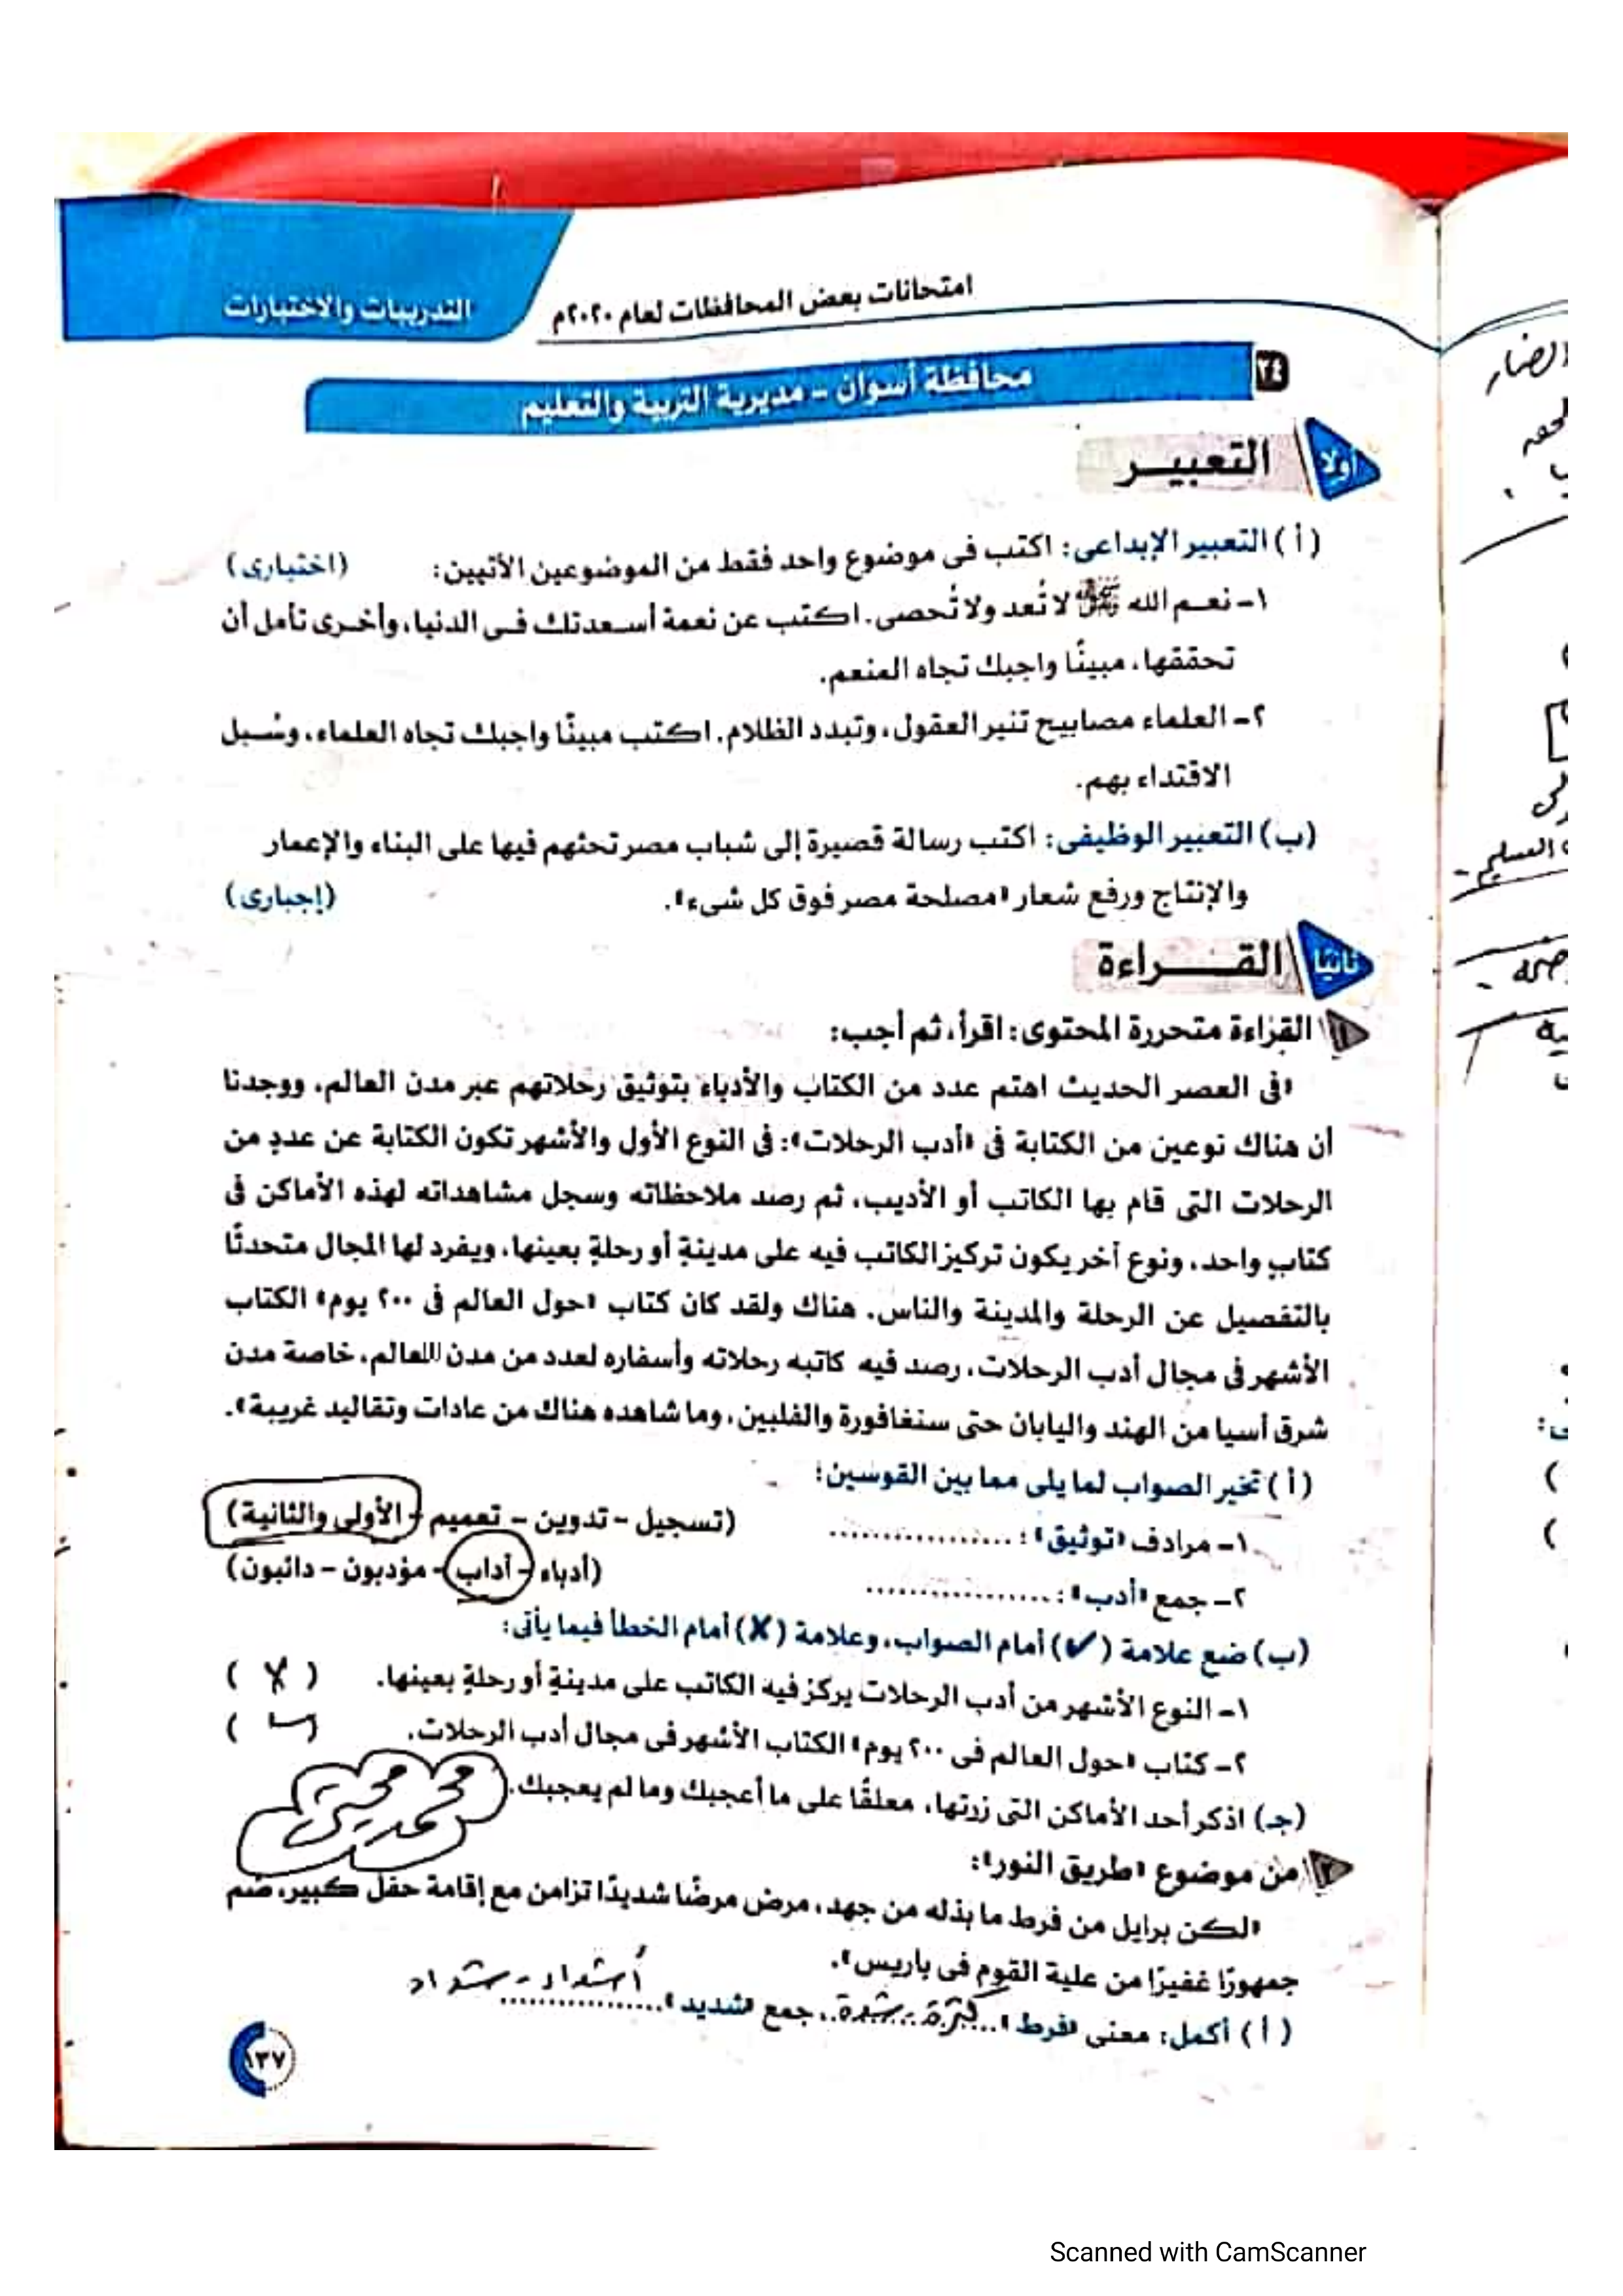 امتحانات بعض المحافظات لعام ٢٠٢٠م
التدريبات والاختبارات
٢٤
محافظة أسوان - مديرية التربية والتعليم
أولا التعبيــر
(أ) التعبير الإبداعى: اكتب فى موضوع واحد فقط من الموضوعين الآتيين: (اختيارى)
١- نعـم الله ﷻ لا تُعد ولا تُحصى. اكتب عن نعمة أسعدتك فى الدنيا، وأخرى تأمل أن
تحققها، مبينًا واجبك تجاه المنعم.
٢- العلماء مصابيح تنير العقول، وتبدد الظلام. اكتب مبينًا واجبك تجاه العلماء، وسُبل
الاقتداء بهم.
(ب) التعبير الوظيفى: اكتب رسالة قصيرة إلى شباب مصر تحثهم فيها على البناء والإعمار
والإنتاج ورفع شعار «مصلحة مصر فوق كل شىء». (إجبارى)
ثانيًا القــــراءة
١ القراءة متحررة المحتوى: اقرأ، ثم أجب:
«فى العصر الحديث اهتم عدد من الكتاب والأدباء بتوثيق رحلاتهم عبر مدن العالم، ووجدنا
أن هناك نوعين من الكتابة فى «أدب الرحلات»: فى النوع الأول والأشهر تكون الكتابة عن عددٍ من
الرحلات التى قام بها الكاتب أو الأديب، ثم رصد ملاحظاته وسجل مشاهداته لهذه الأماكن فى
كتابٍ واحد، ونوع آخر يكون تركيز الكاتب فيه على مدينةٍ أو رحلةٍ بعينها، ويفرد لها المجال متحدثًا
بالتفصيل عن الرحلة والمدينة والناس. هناك ولقد كان كتاب «حول العالم فى ٢٠٠ يوم» الكتاب
الأشهر فى مجال أدب الرحلات، رصد فيه كاتبه رحلاته وأسفاره لعدد من مدن العالم، خاصة مدن
شرق آسيا من الهند واليابان حتى سنغافورة والفلبين، وما شاهده هناك من عادات وتقاليد غريبة».
(أ) تخير الصواب لما يلى مما بين القوسين:
١- مرادف «توثيق»: ................. (تسجيل - تدوين - تعميم - الأولى والثانية)
٢- جمع «أدب»: ................. (أدباء - آداب - مؤدبون - دائبون)
(ب) ضع علامة (✓) أمام الصواب، وعلامة (X) أمام الخطأ فيما يأتى:
١- النوع الأشهر من أدب الرحلات يركز فيه الكاتب على مدينةٍ أو رحلةٍ بعينها. ( X )
٢- كتاب «حول العالم فى ٢٠٠ يوم» الكتاب الأشهر فى مجال أدب الرحلات. ( )
(جـ) اذكر أحد الأماكن التى زرتها، معلقًا على ما أعجبك وما لم يعجبك.
٢ من موضوع «طريق النور»:
«لكن برايل من فرط ما بذله من جهد، مرض مرضًا شديدًا تزامن مع إقامة حفل كبير، ضم
جمهورًا غفيرًا من علية القوم فى باريس».
(أ) أكمل: معنى «فرط» كثرة - شدة، جمع «شديد» أشداء - شداد
١٣٧
Scanned with CamScanner